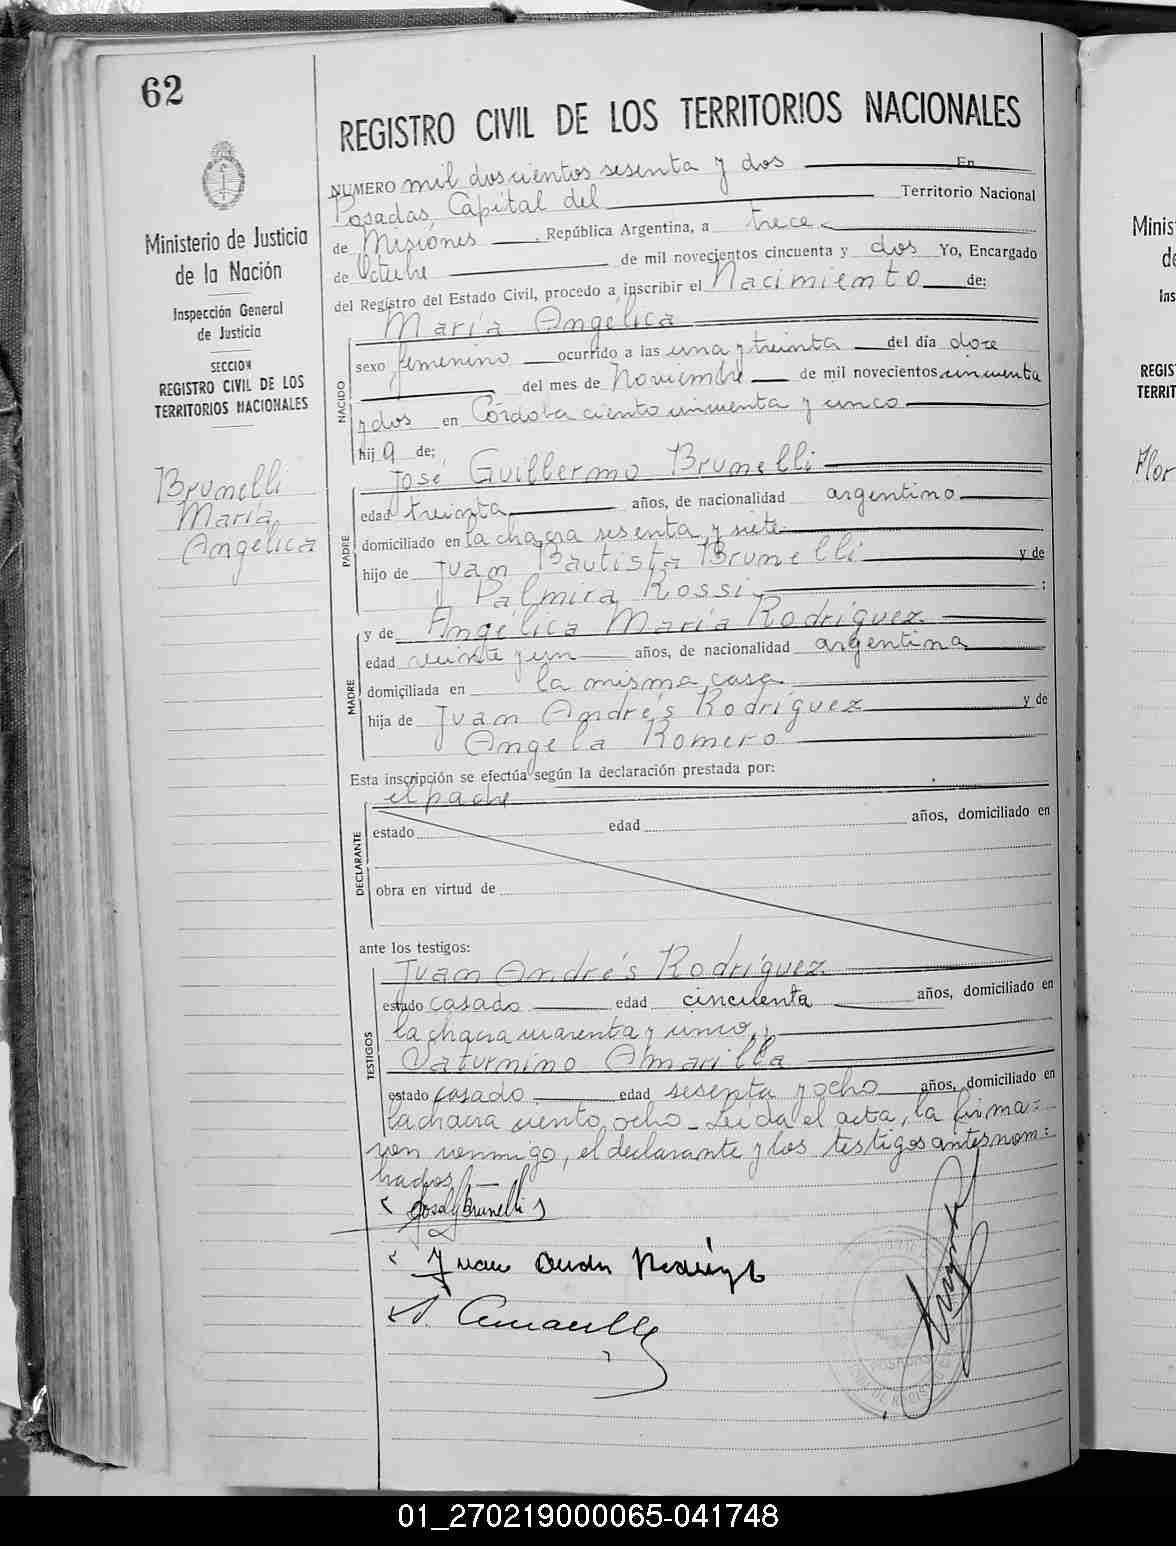 62
REGISTRO CIVIL DE LOS TERRITORIOS NACIONALES
Ministerio de Justicia
de la Nación
Inspección General
de Justicia
SECCION
REGISTRO CIVIL DE LOS
TERRITORIOS NACIONALES
Brunelli
María
Angélica
NUMERO mil doscientos sesenta y dos En
Posadas, Capital del Territorio Nacional
de Misiones, República Argentina, a trece
de Octubre de mil novecientos cincuenta y dos Yo, Encargado
del Registro del Estado Civil, procedo a inscribir el Nacimiento de:
María Angélica
NACIDO
sexo femenino ocurrido a las una y treinta del día doce
del mes de Noviembre de mil novecientos cincuenta
y dos en Córdoba ciento cincuenta y cinco
hija de:
José Guillermo Brunelli
PADRE
edad treinta años, de nacionalidad argentino
domiciliado en la chacra sesenta y siete
hijo de Juan Bautista Brunelli y de
Palmira Rossi;
y de Angélica María Rodríguez
MADRE
edad veinte y un años, de nacionalidad argentina
domiciliada en la misma casa
hija de Juan Andrés Rodríguez y de
Angela Romero
Esta inscripción se efectúa según la declaración prestada por:
el padre
DECLARANTE
estado edad años, domiciliado en
obra en virtud de
ante los testigos:
Juan Andrés Rodríguez
TESTIGOS
estado casado edad cincuenta años, domiciliado en
la chacra cuarenta y cinco, y
Saturnino Amarilla
estado casado edad sesenta y ocho años, domiciliado en
la chacra ciento ocho - Leída el acta, la firma=
ron conmigo, el declarante y los testigos antes nom=
brados
José G Brunelli
Juan Andrés Rodríguez
S. Amarilla
POSADAS
Minis
de
Ins
REGIS
TERRIT
Flor
01_270219000065-041748